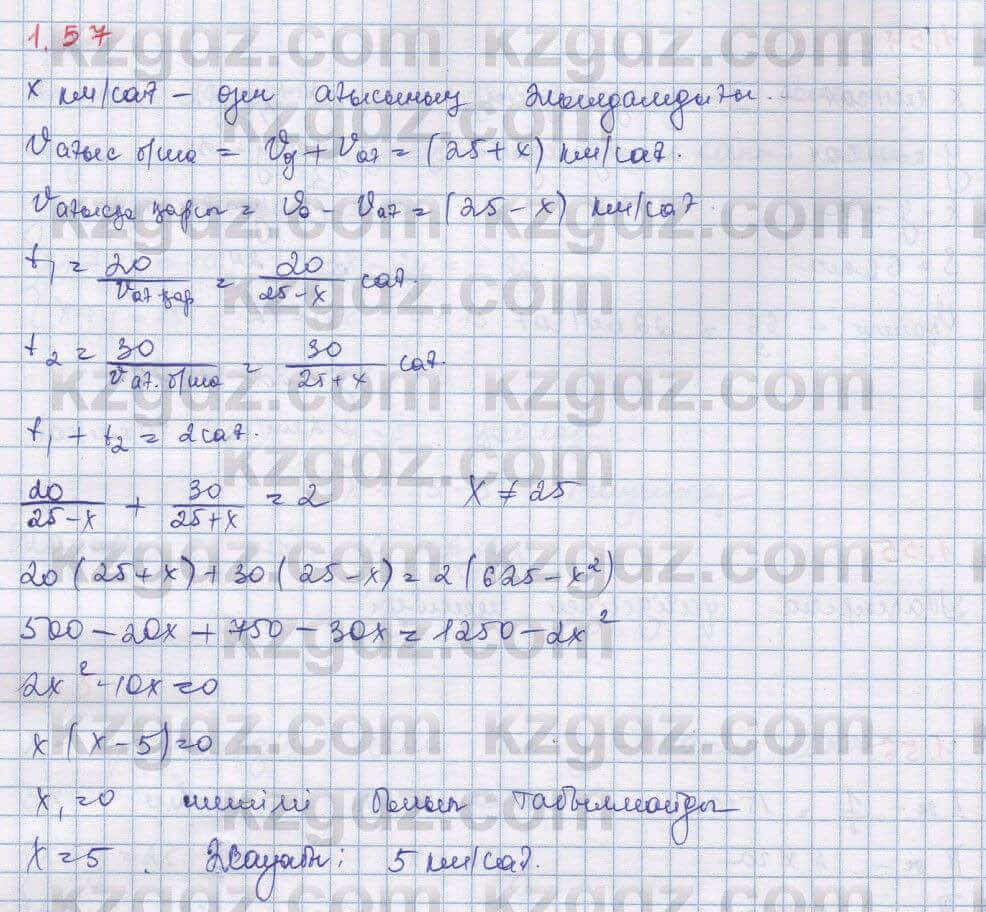 1.57
x км/сағ – өзен ағысының жылдамдығы.
Vағыс б/ша = Vө + Vағ = (25+x) км/сағ.
Vағысқа қарсы = Vө – Vағ = (25-x) км/сағ.
t₁ = 20/Vағ.қар = 20/(25-x) сағ.
t₂ = 30/Vағ.б/ша = 30/(25+x) сағ.
t₁ + t₂ = 2 сағ.
20/(25-x) + 30/(25+x) = 2 X ≠ 25
20(25+x)+30(25-x)=2(625-x²)
500-20x+750-30x=1250-2x²
2x²-10x=0
x(x-5)=0
x₁=0 шешімі болып табылмайды
x=5. Жауабы: 5 км/сағ.
kzgdz.com